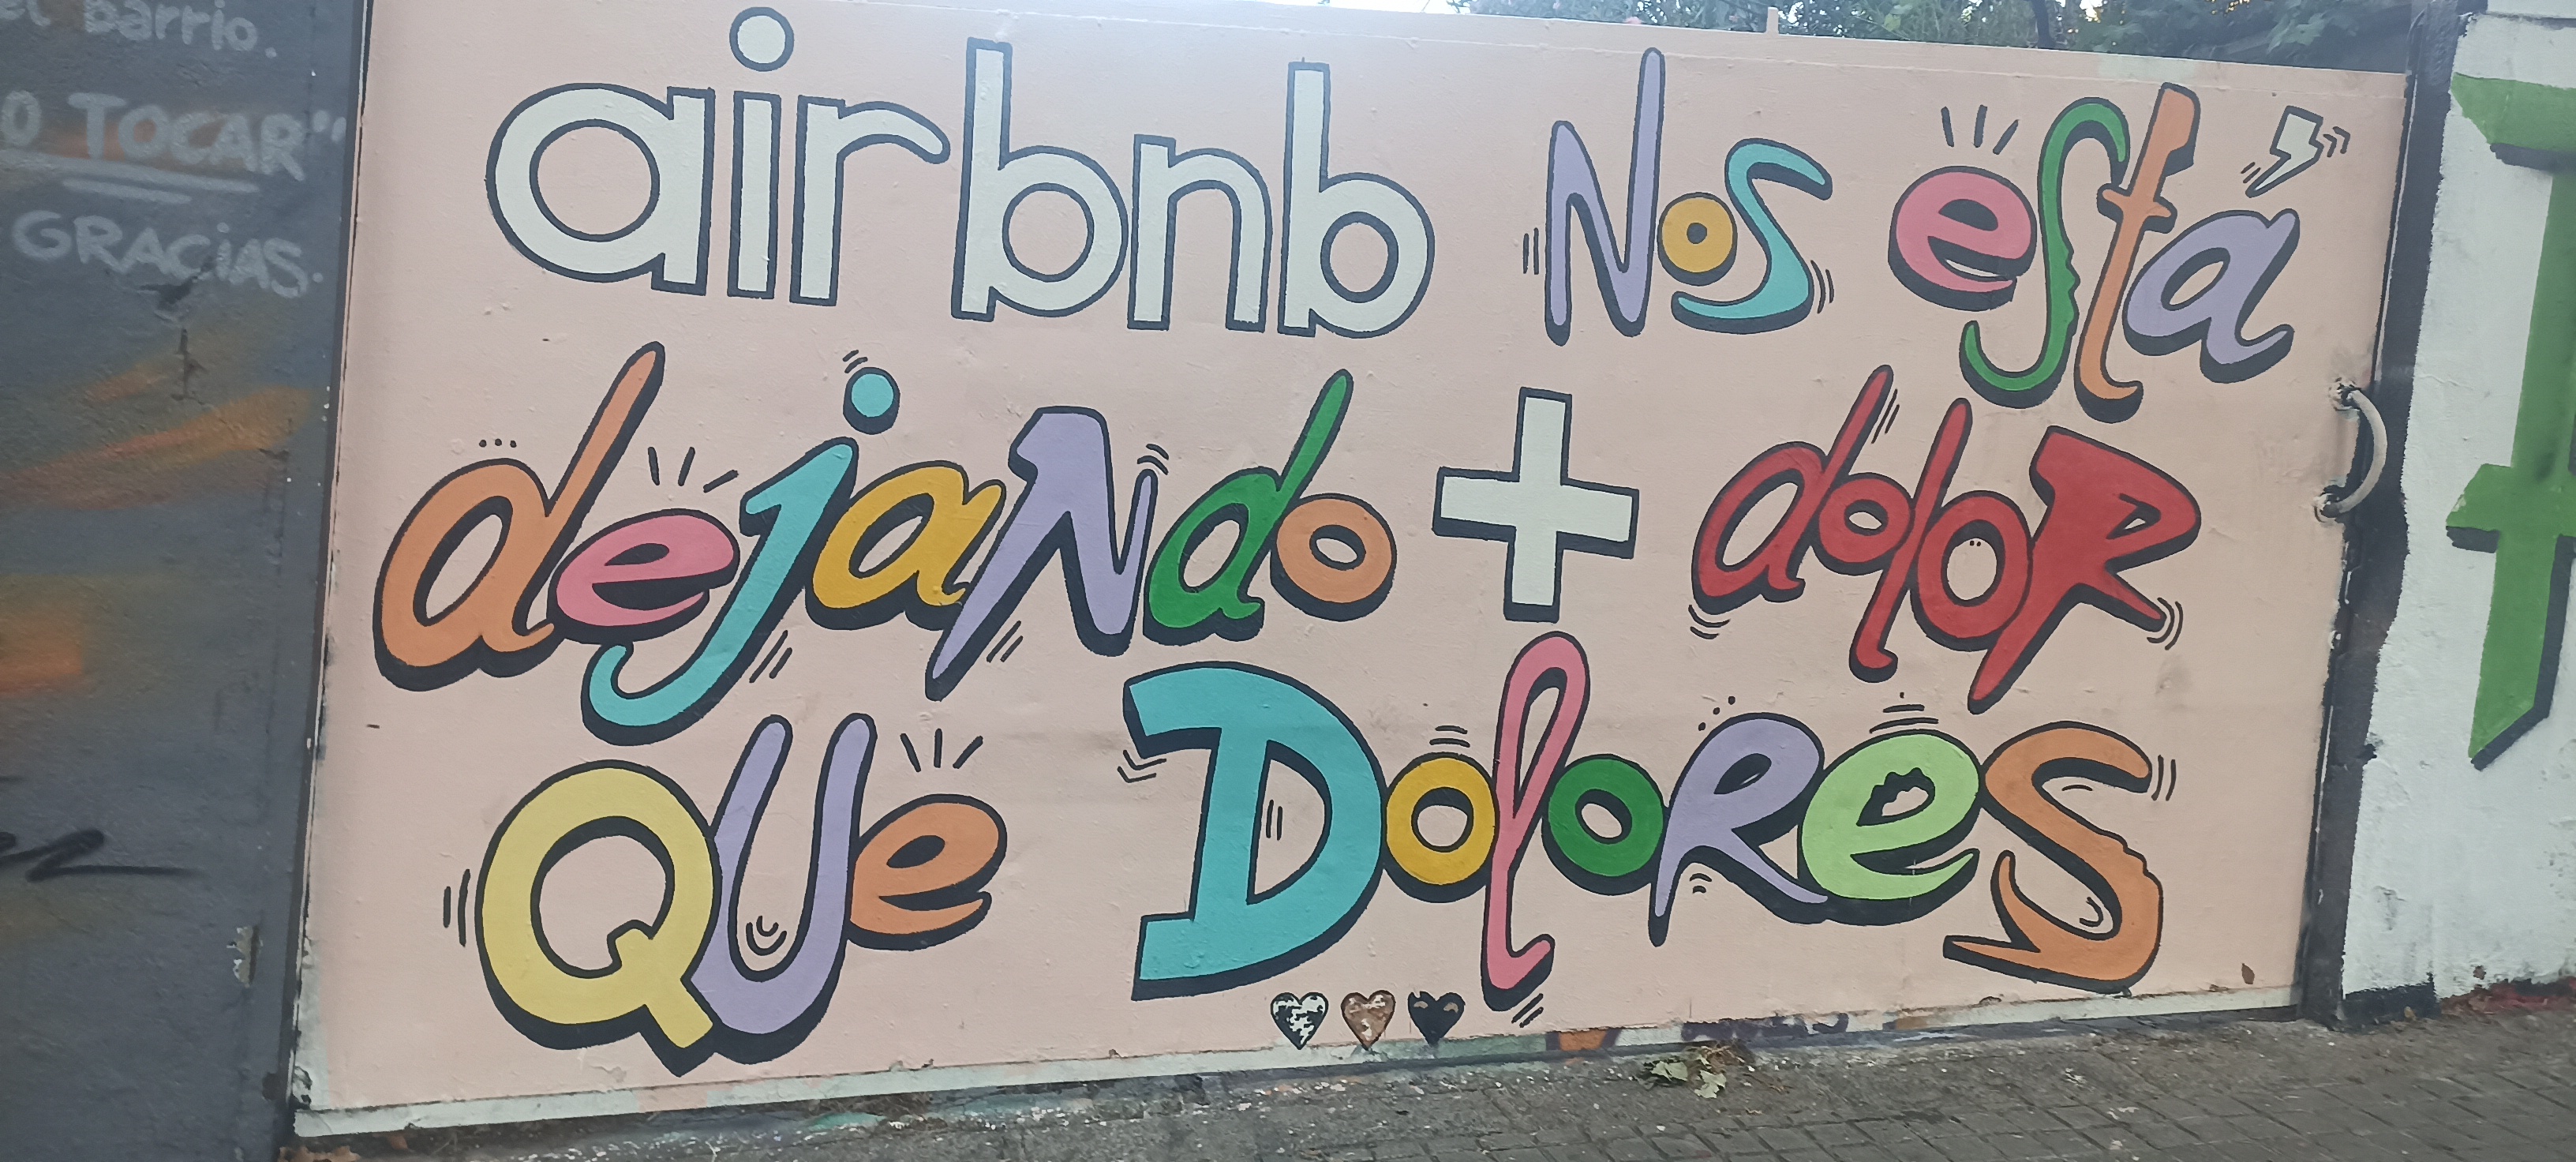 el barrio.
O TOCAR"
GRACiAS.
airbnb Nos está
dejando + dolor
Que Dolores